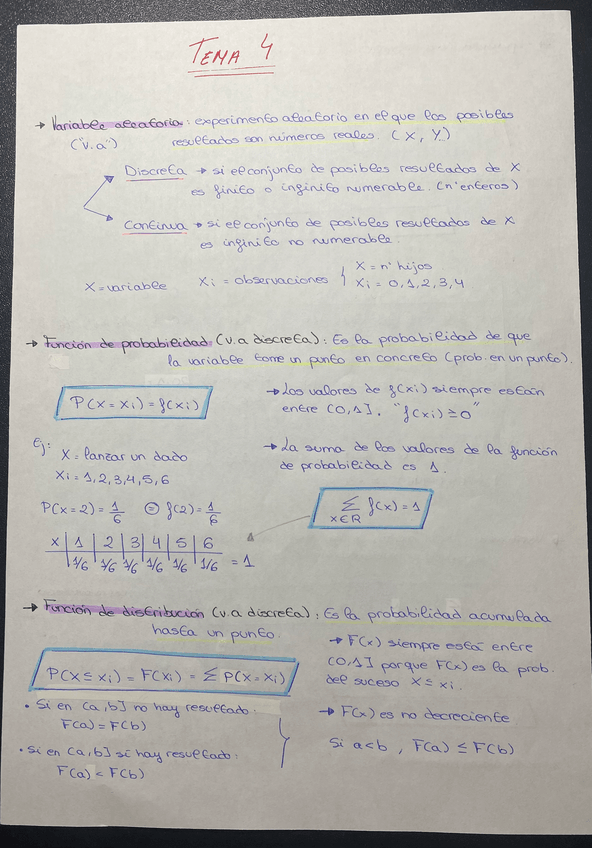 TEMA 4
→ Variable aleatoria: experimento aleatorio en el que los posibles
("v.a") resultados son números reales. (X, Y)
Discreta → si el conjunto de posibles resultados de X
es finito o infinito numerable. (nº enteros)
Continua → si el conjunto de posibles resultados de X
es infinito no numerable.
X = variable Xi = observaciones { X = nº hijos
Xi = 0, 1, 2, 3, 4
→ Función de probabilidad (v.a discreta): Es la probabilidad de que
la variable tome un punto en concreto (prob. en un punto).
P(X = Xi) = f(xi)
→ Los valores de f(xi) siempre están
entre (0,1]. "f(xi) ≥ 0"
Ej: X = lanzar un dado
Xi = 1, 2, 3, 4, 5, 6
→ La suma de los valores de la función
de probabilidad es 1.
P(X=2) = 1/6 = f(2) = 1/6
∑ f(x) = 1
X∈R
X | 1 | 2 | 3 | 4 | 5 | 6
| 1/6 | 1/6 | 1/6 | 1/6 | 1/6 | 1/6 = 1
→ Función de distribución (v.a discreta): Es la probabilidad acumulada
hasta un punto.
P(X ≤ xi) = F(xi) = ∑ P(X = xi)
→ F(x) siempre está entre
(0,1] porque F(x) es la prob.
del suceso X ≤ xi.
• Si en (a,b] no hay resultado:
F(a) = F(b)
• Si en (a,b] sí hay resultado:
F(a) < F(b)
→ F(x) es no decreciente
Si a<b, F(a) ≤ F(b)